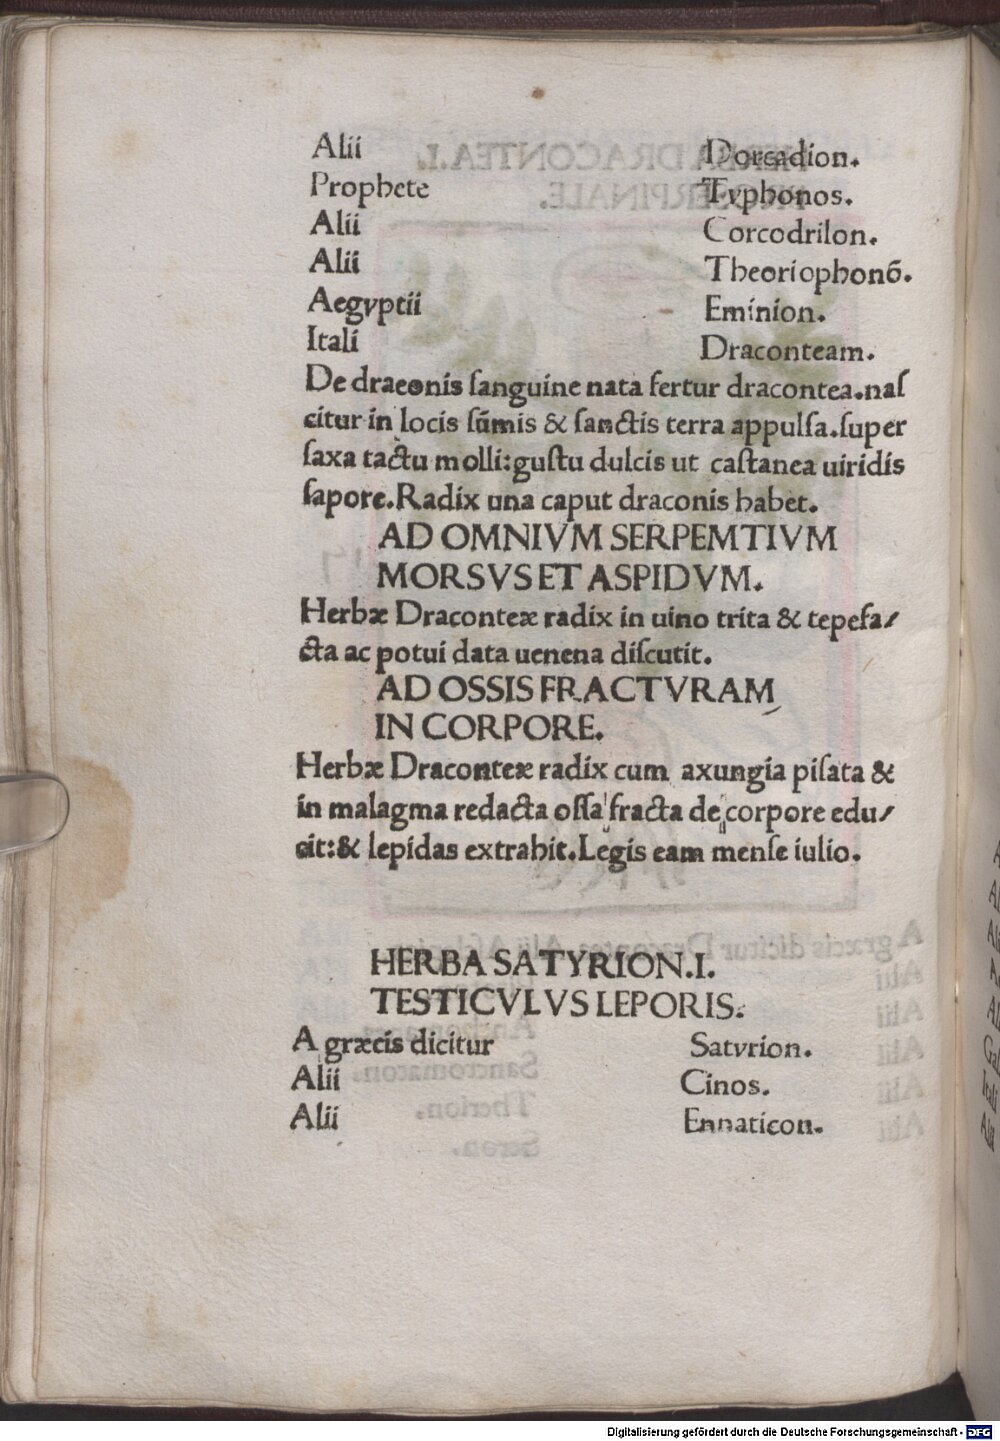 Alii Dorcadion.
Prophete Typhonos.
Alii Corcodrilon.
Alii Theoriophonō.
Aegyptii Eminion.
Itali Draconteam.
De draconis ſanguine nata fertur dracontea.naſ
citur in locis ſūmis & ſanctis terra appulſa.ſuper
ſaxa tactu molli:guſtu dulcis ut caſtanea uiridis
ſapore.Radix una caput draconis habet.
AD OMNIVM SERPEMTIVM
MORSVS ET ASPIDVM.
Herbæ Draconteæ radix in uino trita & tepefa/
cta ac potui data uenena diſcutit.
AD OSSIS FRACTVRAM
IN CORPORE.
Herbæ Draconteæ radix cum axungia piſata &
in malagma redacta oſſa fracta de corpore edu/
cit:& lepidas extrahit.Legis eam menſe iulio.
HERBA SATYRION.I.
TESTICVLVS LEPORIS.
A græcis dicitur Satyrion.
Alii Cinos.
Alii Ennaticon.
Digitalisierung gefördert durch die Deutsche Forschungsgemeinschaft - DFG